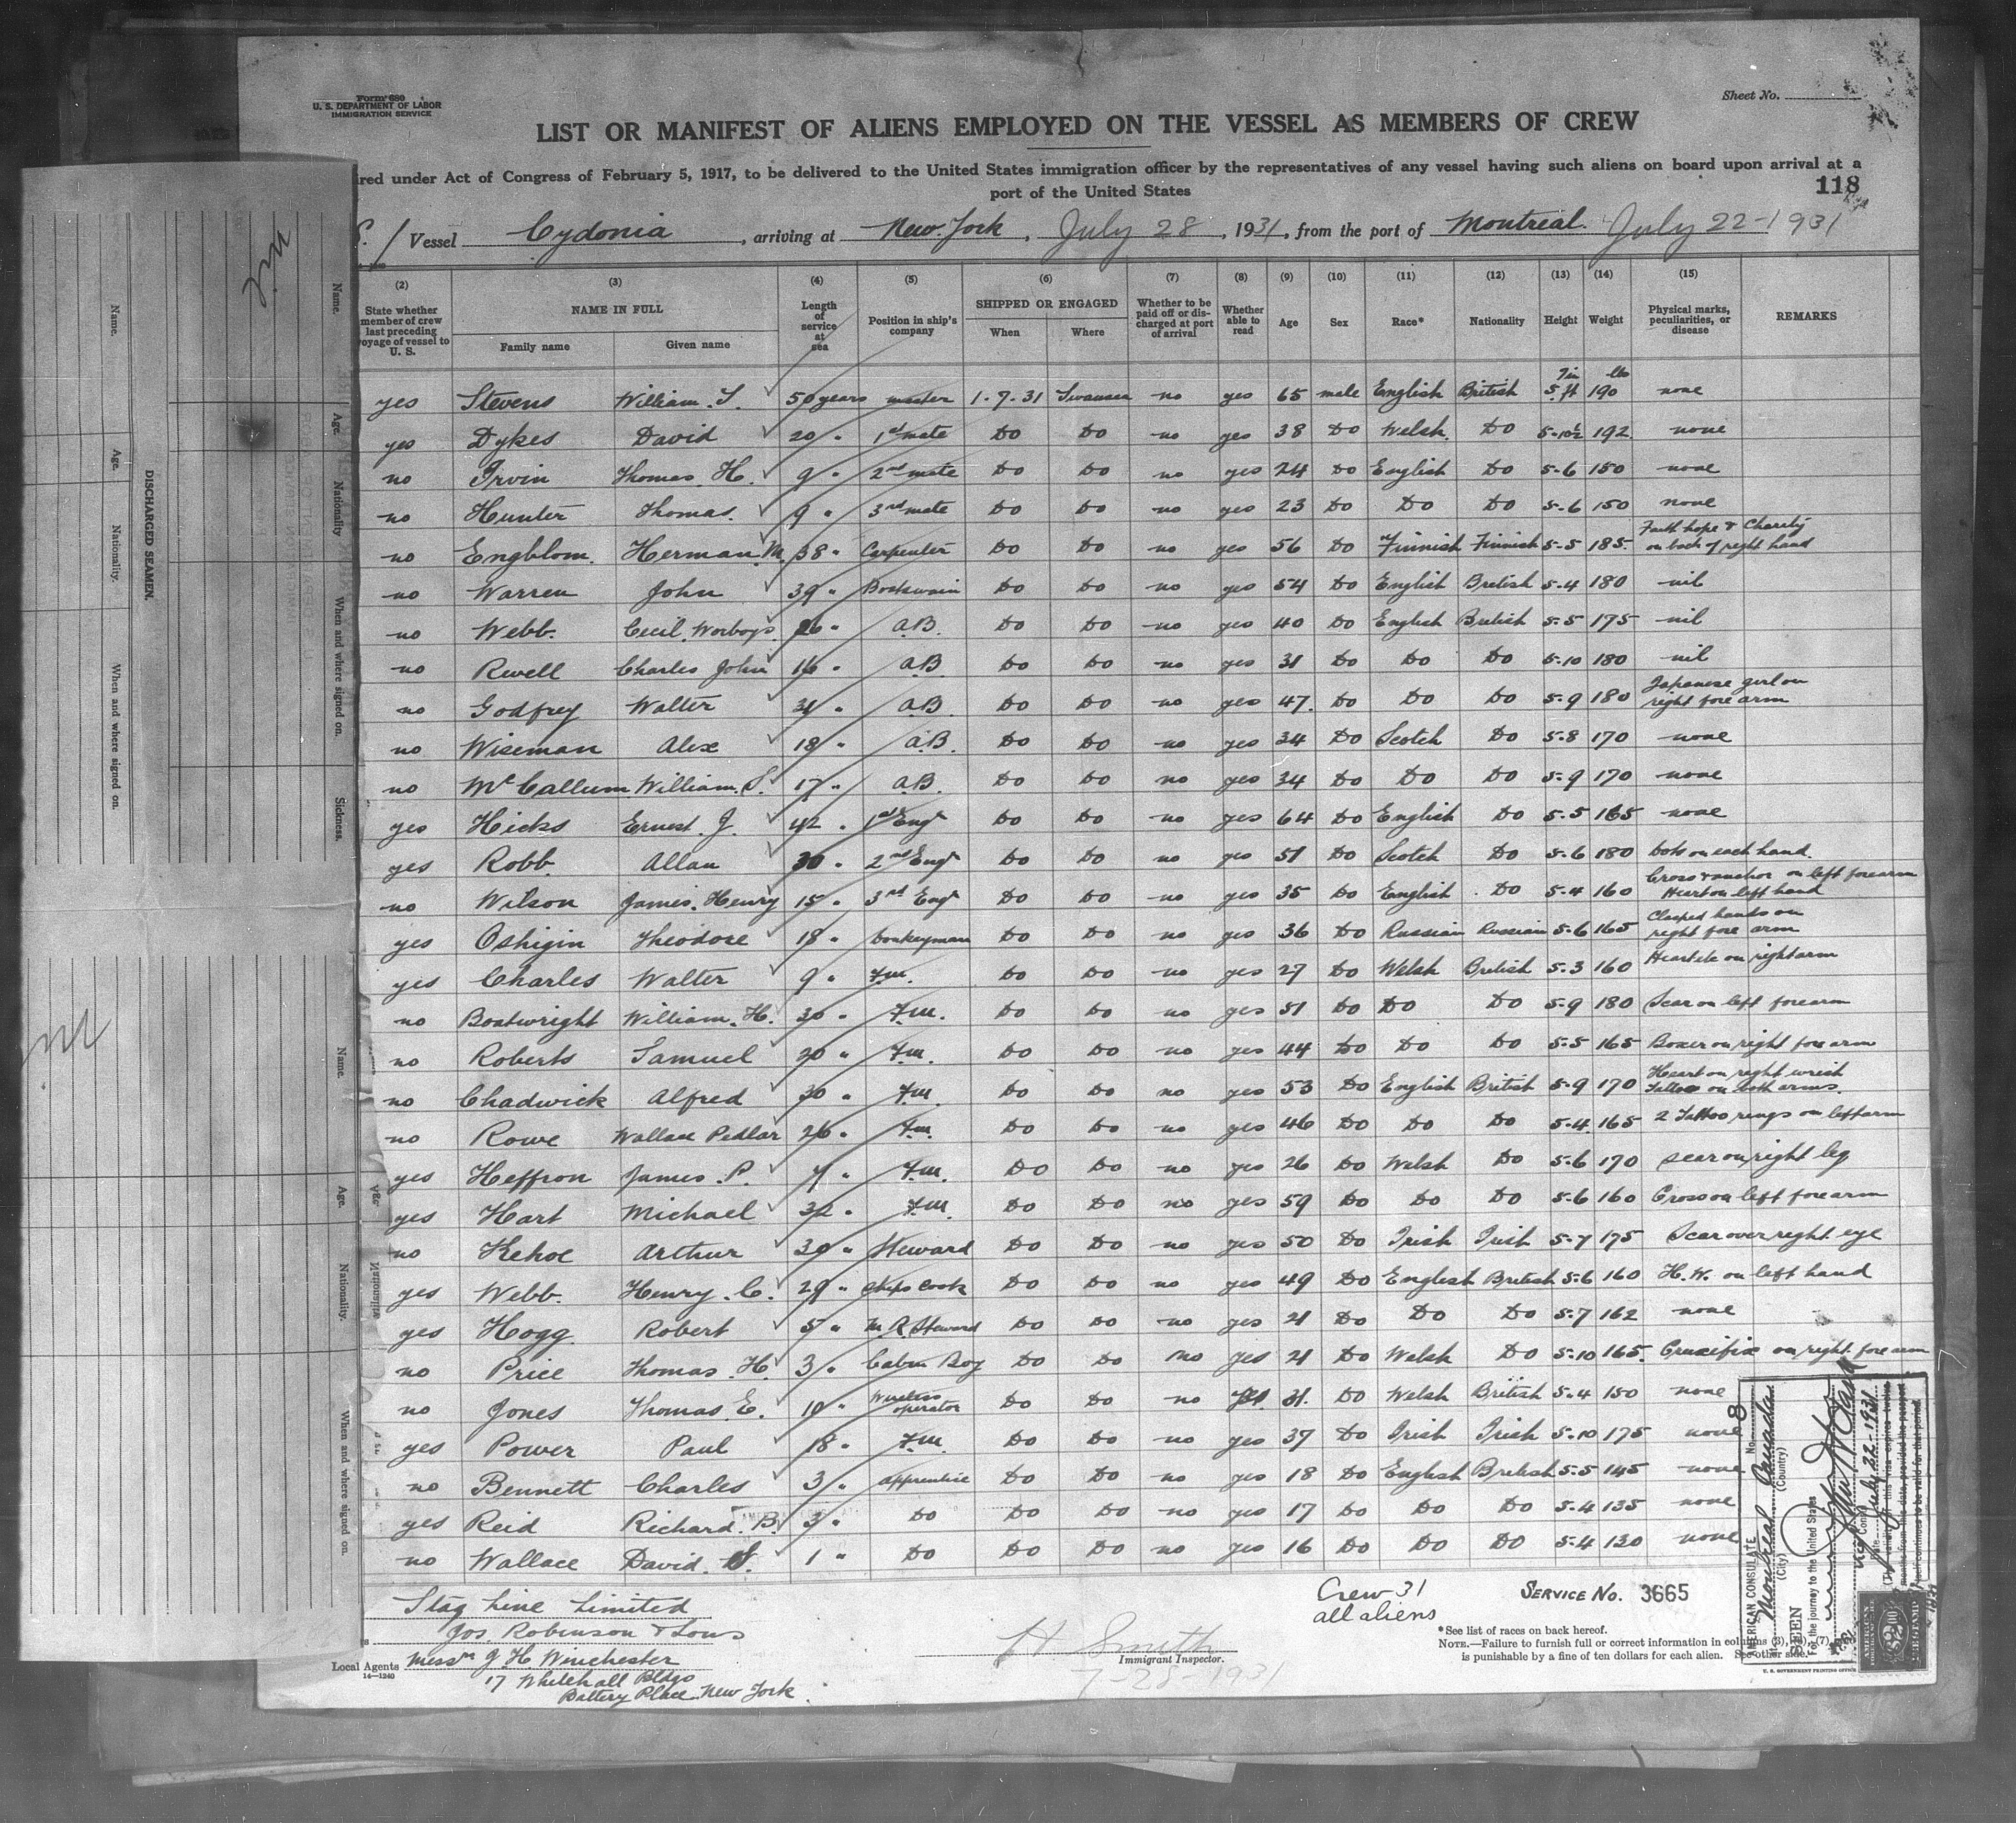 Form 680
U. S. DEPARTMENT OF LABOR
IMMIGRATION SERVICE
Sheet No.
LIST OR MANIFEST OF ALIENS EMPLOYED ON THE VESSEL AS MEMBERS OF CREW
ired under Act of Congress of February 5, 1917, to be delivered to the United States immigration officer by the representatives of any vessel having such aliens on board upon arrival at a
port of the United States
118
S. / Vessel Cydonia, arriving at New York, July 28, 1931, from the port of Montreal. July 22-1931
(2) (3) (4) (5) (6) (7) (8) (9) (10) (11) (12) (13) (14) (15)
State whether member of crew last preceding voyage of vessel to U. S. NAME IN FULL Family name Given name Length of service at sea Position in ship's company SHIPPED OR ENGAGED When Where Whether to be paid off or discharged at port of arrival Whether able to read Age Sex Race* Nationality Height Weight Physical marks, peculiarities, or disease REMARKS
yes Stevens William. T. 50 years master 1-7-31 Swansea no yes 65 male English British 5 ft 7 in 190 lbs none
yes Dykes David 20 " 1st mate Do Do no yes 38 Do Welsh. Do 5-10½ 192 none
no Irvin Thomas. H. 9 " 2nd mate Do Do no yes 24 Do English Do 5-6 150 none
no Hunter Thomas. 9 " 3rd mate Do Do no yes 23 Do Do Do 5-6 150 none
no Engblom. Herman. M. 38 " Carpenter Do Do no yes 56 Do Finnish Finnish 5-5 185. Faith hope & Charity on back of right hand
no Warren John 39 " Boatswain Do Do no yes 54 Do English British 5-4 180 nil
no Webb. Cecil. Worboys. 26 " A.B. Do Do no yes 40 Do English British 5-5 175 nil
no Revell Charles John 16 " A.B Do Do no yes 31 Do Do Do 5-10 180 nil
no Godfrey Walter 31 " A.B. Do Do no yes 47. Do Do Do 5-9 180 Japanese girl on right fore arm
no Wiseman Alex 18 " A.B. Do Do no yes 34 Do Scotch Do 5-8 170 none
no McCallum William. S. 17 " A.B. Do Do no yes 34 Do Do Do 5-9 170 none
yes Hicks Ernest. J. 42 " 1st Engr Do Do no yes 64 Do English Do 5-5 165 none
yes Robb. Allan 30 " 2nd Engr Do Do no yes 51 Do Scotch Do 5-6 180 Dots on each hand.
no Wilson James. Henry 15 " 3rd Engr Do Do no yes 35 Do English Do 5-4 160 Cross & anchor on left forearm Heart on left hand
yes Oshigin Theodore 18 " Donkeyman Do Do no yes 36 Do Russian Russian 5-6 165 Clasped hands on right fore arm
yes Charles Walter 9 " F.m. Do Do no yes 27 Do Welsh British 5-3 160 Heart etc on right arm
no Boatwright William. H. 30 " F.m. Do Do no yes 51 Do Do Do 5-9 180 Scar on left forearm
no Roberts Samuel 20 " F.m. Do Do no yes 44 Do Do Do 5-5 165 Boxer on right fore arm
no Chadwick Alfred 30 " F.m. Do Do no yes 53 Do English British 5-9 170 Heart on right wrist Tattoo on both arms.
no Rowe Wallace Pedlar 26 " F.m. Do Do no yes 46 Do Do Do 5-4. 165 2 Tattoo rings on left arm
yes Heffron James. P. 7 " F.m. Do Do no yes 26 Do Welsh Do 5-6 170 scar on right leg
yes Hart Michael 32 " F.m. Do Do no yes 59 Do Do Do 5-6 160 Cross on left forearm
no Kehoe Arthur 30 " Steward Do Do no yes 50 Do Irish Irish 5-7 175 Scar over right eye
yes Webb. Henry. C. 29 " Ships Cook Do Do no yes 49 Do English British 5-6 160 H. W. on left hand
yes Hogg Robert 5 " M. R. Steward Do Do no yes 21 Do Do Do 5-7 162 none
no Price Thomas. H. 3 " Cabin Boy Do Do no yes 21 Do Welsh Do 5-10 165. Crucifix on right fore arm
no Jones Thomas. E. 10 " Wireless operator Do Do no yes 31. Do Welsh British 5-4 150 none
yes Power Paul 18 " F.m. Do Do no yes 37 Do Irish Irish 5-10 175 none
no Bennett Charles 3 " apprentice Do Do no yes 18 Do English British 5-5 145 none
yes Reid Richard. B. 3 " Do Do Do no yes 17 Do Do Do 5-4 135 none
no Wallace David. S. 1 " Do Do Do no yes 16 Do Do Do 5-4 130 none
Stag Line Limited
Jos. Robinson & Sons
Local Agents Messrs J. H. Winchester
14-1240
17 Whitehall Bldgs
Battery Place New York.
H Smith
Immigrant Inspector.
7-28-1931
Crew 31
all aliens
SERVICE NO. 3665
*See list of races on back hereof.
NOTE.—Failure to furnish full or correct information in columns (3), (7)
is punishable by a fine of ten dollars for each alien. See other side.
U. S. GOVERNMENT PRINTING OFFICE
AMERICAN CONSULATE No. 8
at Montreal Canada
(City) (Country)
SEEN
For the journey to the United States
Vice Consul
Date July 22-1931
DISCHARGED SEAMEN.
Name. Age. Nationality. When and where signed on.
Name. Age. Nationality When and where signed on. Sickness.
Name. Age. Nationality. When and where signed on.